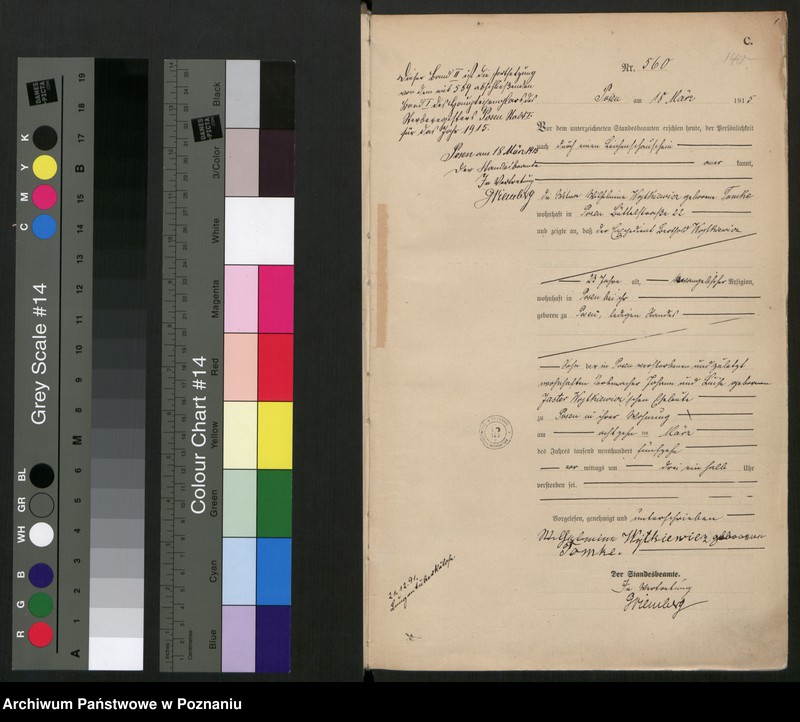 C.
Nr. 560
Dieser Band II ist die Fortsetzung
von dem mit 559 abschließenden
Band I des Hauptregisters des
Sterberegisters Posen Stadt
für das Jahr 1915.
Posen am 18 März 1915
Der Standesbeamte
In Vertretung
Posen am 18 März 1915
Vor dem unterzeichneten Standesbeamten erschien heute, der Persönlichkeit
nach durch einen Leichenschauschein
kannt,
die Witwe Wilhelmine Woytkiewicz geborene Tomke
wohnhaft in Posen Büttelstraße 22
und zeigte an, daß der Expedient Berthold Woytkiewicz
Jahre evangelischer Religion,
wohnhaft in Posen bei ihr
geboren zu Posen, ledigen Standes
Sohn der in Posen verstorbenen und zuletzt
wohnhaften Johann und geborenen
Woytkiewicz'schen Eheleute
zu Posen in ihrer Wohnung
am achtzehn März
des Jahres tausend neunhundert fünfzehn
vor mittags um drei ein halb Uhr
verstorben sei.
Vorgelesen, genehmigt und unterschrieben
Wilhelmine Woytkiewicz geborene
Tomke.
Der Standesbeamte.
In Vertretung
Lungentuberkulose
Grey Scale #14
Colour Chart #14
DANES PICTA
R G B WH GR BL C M Y K
A 1 2 3 4 5 6 M 8 9 10 11 12 13 14 15 B 17 18 19
Blue Cyan Green Yellow Red Magenta White 3/Color Black
Centimetres
Archiwum Państwowe w Poznaniu